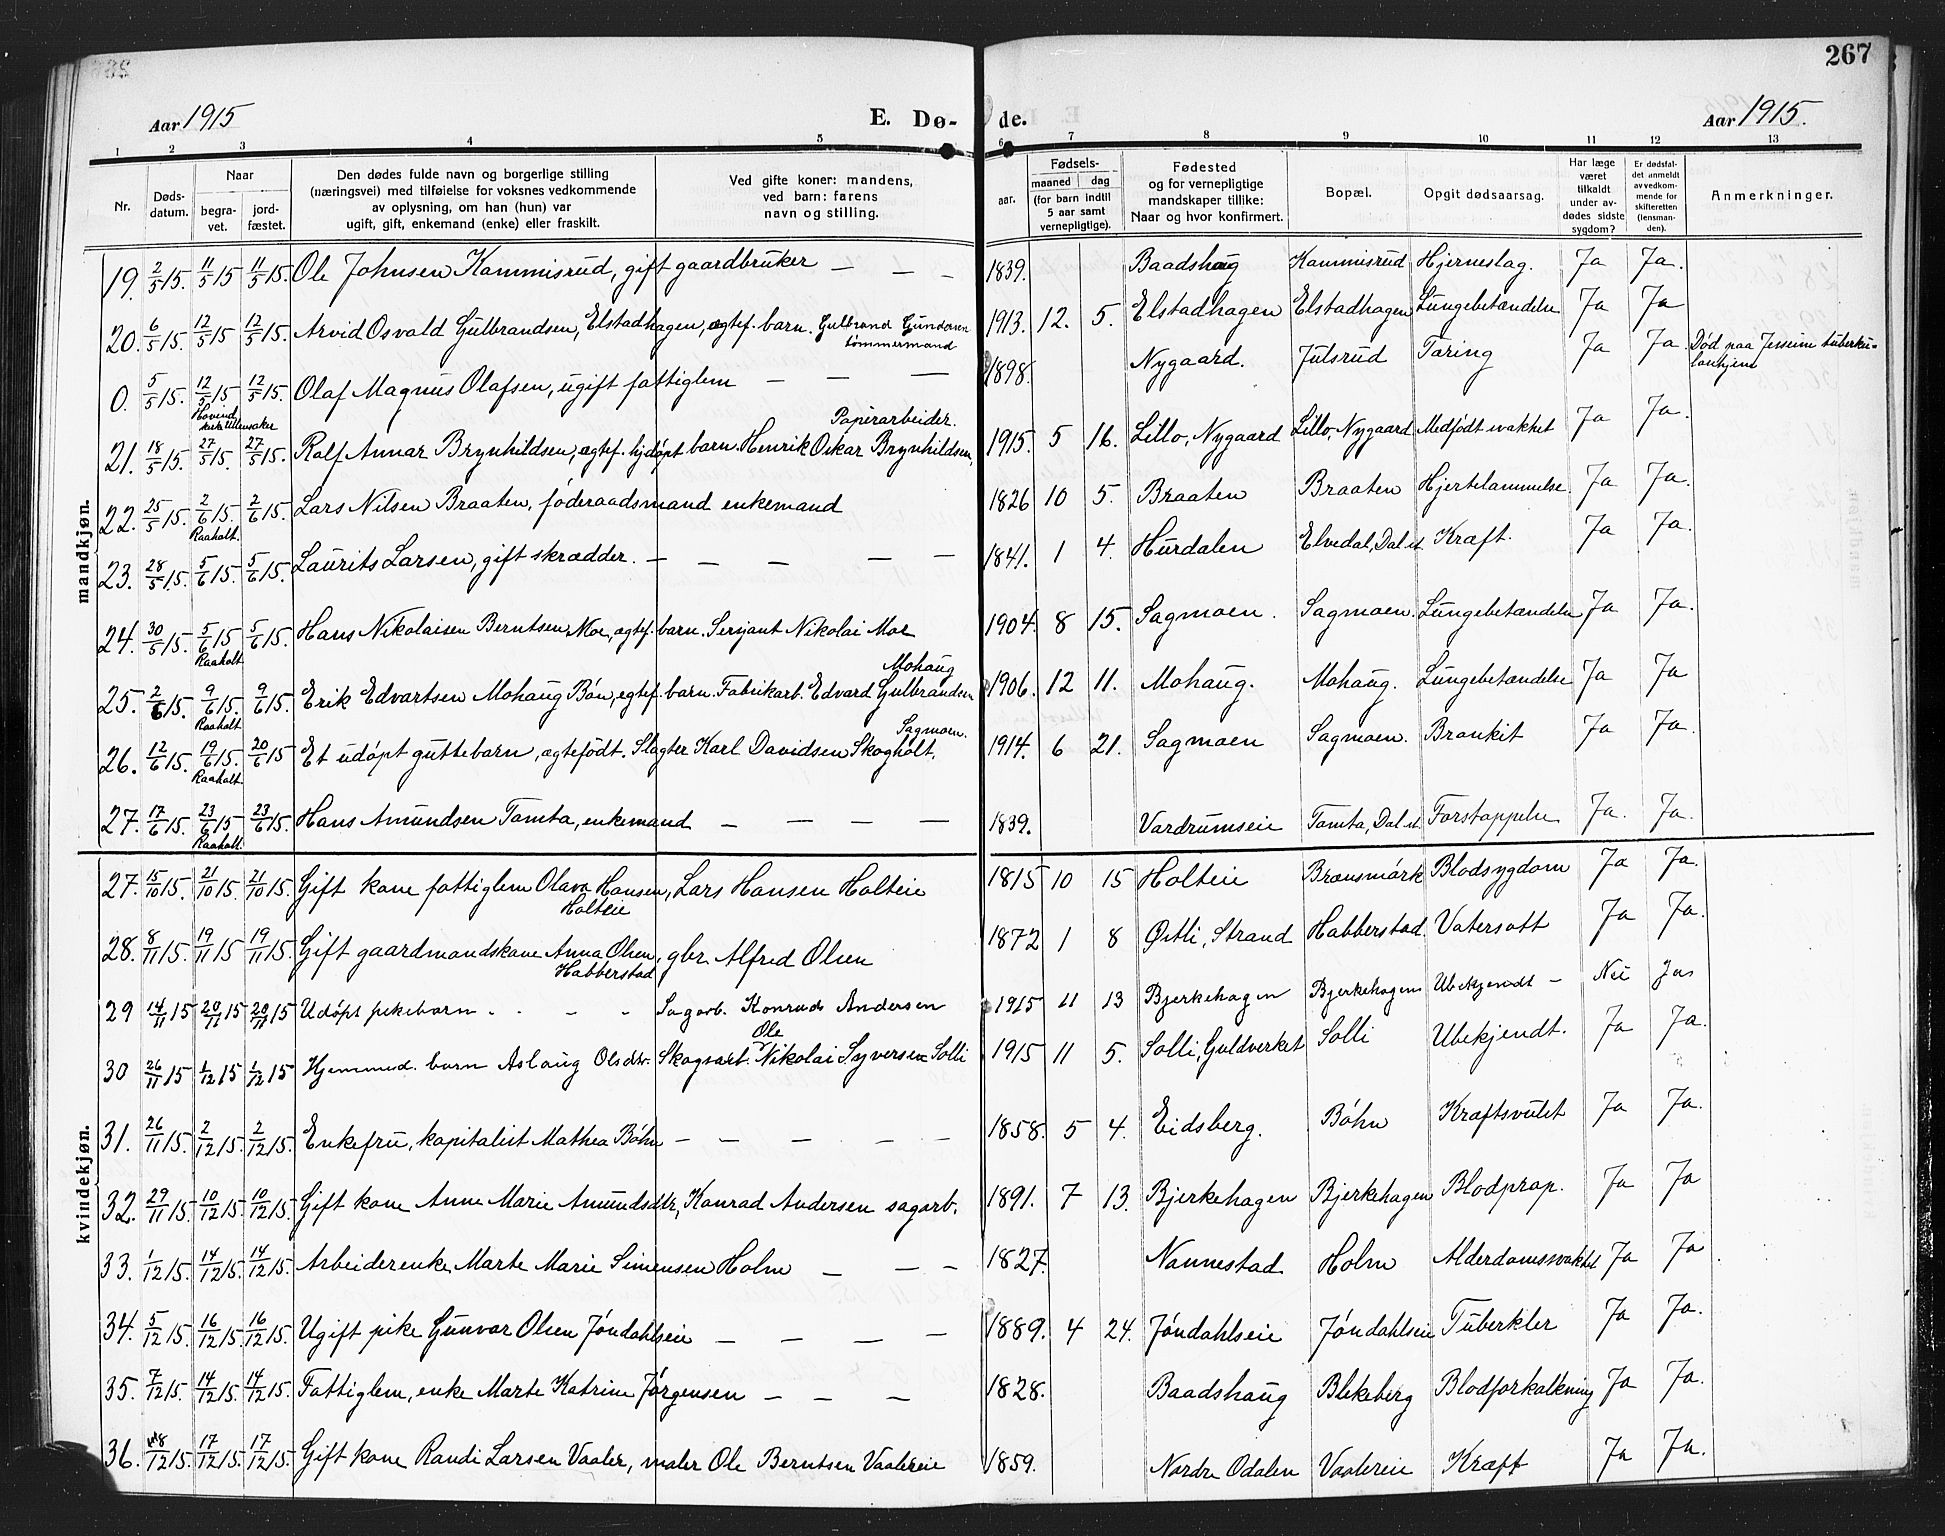 267
Aar 1915 E. Dø- de. Aar 1915.
1 2 3 4 5 6 7 8 9 10 11 12 13
Nr. Døds-datum. Naar begra-vet. jord-fæstet. Den dødes fulde navn og borgerlige stilling (næringsvei) med tilføielse for voksnes vedkommende av oplysning, om han (hun) var ugift, gift, enkemand (enke) eller fraskilt. Ved gifte koner: mandens, ved barn: farens navn og stilling. aar. Fødsels- maaned dag (for barn indtil 5 aar samt vernepligtige). Fødested og for vernepligtige mandskaper tillike: Naar og hvor konfirmert. Bopæl. Opgit dødsaarsag. Har læge været tilkaldt under av-dødes sidste sygdom? Er dødsfal-det anmeldt av vedkom-mende for skifteretten (lensman-den). Anmerkninger.
mandkjøn.
19. 2/5 15. 11/5 15 11/5 15. Ole Johnsen Kammisrud, gift gaardbruker — — — 1839. Baadshaug Kammisrud Hjerneslag. Ja Ja.
20. 6/5 15. 12/5 15 12/5 15. Arvid Osvald Gulbrandsen, Elstadhagen, ægtef. barn. Gulbrand Gundersen tømmermand 1913. 12. 5. Elstadhagen Elstadhagen Lungebetændelse Ja Ja
0. 5/5 15. 12/5 15 12/5 15. Olaf Magnus Olafsen, ugift fattiglem — — — 1898. Nygaard. Julsrud Tæring Ja Ja. Død paa Jessheim tuberku-
Hovind kirke Ullensaker loshjem
Papirarbeider.
21. 18/5 15. 27/5 15. 27/5 15. Rolf Annar Brynhildsen, ægtef. hjdøpt barn. Henrik Oskar Brynhildsen, 1915. 5 16. Lillo, Nygaard Lillo, Nygaard Medfødt svakhet Ja Ja.
22. 25/5 15. 2/6 15. 2/6 15. Lars Nilsen Braaten, føderaadsmand enkemand 1826 10 5. Braaten Braaten Hjertelammelse. Ja Ja.
Raaholt.
23. 28/5 15. 5/6 15. 5/6 15. Laurits Larsen, gift skrædder. — — — — — 1841. 1 4. Hurdalen Elvedal, Dal st Kræft. Ja Ja.
24. 30/5 15. 5/6 15 5/6 15. Hans Nikolaisen Berntsen Mor, ægtef. barn. Sersjant Nikolai Mor 1904. 8 15. Sagmoen. Sagmoen. Lungebetændelse Ja Ja.
Raaholt. Mohaug
25. 2/6 15. 9/6 15. 9/6 15. Erik Edvartsen Mohaug Bøn, ægtef. barn. Fabrikarb. Edvard Gulbrandsen 1906. 12 11. Mohaug. Mohaug. Lungebetændelse Ja Ja
Raaholt. Sagmoen.
26. 12/6 15. 19/6 15. 20/6 15 Et udøpt guttebarn, ægtefødt. Slagter Karl Davidsen Skogholt. 1914. 6 21. Sagmoen Sagmoen. Bronkit Ja Ja.
Raaholt.
27. 17/6 15. 23/6 15 23/6 15. Hans Amundsen Tomta, enkemand — — — — 1839. Vardrumseie Tomta, Dal st Forstoppelse Ja. Ja.
Raaholt.
kvindekjøn.
27. 15/10 15. 21/10 15. 21/10 15. Gift kone fattiglem Olava Hansen, Lars Hansen Holteie 1815 10 15 Holteie Brænsmørk Blodsygdom Ja Ja.
Holteie
28. 8/11 15. 19/11 15 19/11 15. Gift gaardmandskone Anna Olsen, gbr. Alfred Olsen 1872 1 8 Østli, Strand Habberstad. Vatersott Ja Ja.
Habberstad
29 14/11 15 20/11 15 20/11 15 Udøpt pikebarn - - - - Sagarb. Konrad Andersen 1915 11 13 Bjerkehagen Bjerkehagen Ubekjendt — Nei Ja
Ole
30 26/11 15 1/12 15 1/12 15 Hjemmed. barn Aslaug Olsdtr. Skogsarb. Nikolai Syversen Solli 1915 11 5. Solli, Guldverket Solli Ubekjendt. Ja Ja.
31. 26/11 15. 2/12 15. 2/12 15. Enkefru, kapitalist Mathea Bøhn — — — — — 1858. 5 4. Eidsberg. Bøhn Kræftsvulst Ja Ja.
32. 29/11 15. 10/12 15. 10/12 15. Gift kone Anne Marie Amundsdtr, Konrad Andersen sagarb. 1891. 7 13. Bjerkehagen Bjerkehagen Blodprop. Ja Ja
33. 1/12 15. 14/12 15. 14/12 15. Arbeiderenke Marte Marie Simensen Holm — — — 1827. Nannestad Holm Alderdomssvakhet Ja Ja.
34. 5/12 15. 16/12 15. 16/12 15. Ugift pike Gunvor Olsen Jøndahlseie — — — — 1889. 4 24. Jøndahlseie Jøndahlseie Tuberkler Ja Ja.
35. 7/12 15. 14/12 15. 14/12 15. Fattiglem, enke Marte Katrine Jørgensen — — — 1828. Baadshaug Blekeberg Blodforkalkning Ja Ja.
36. 8/12 15. 17/12 15. 17/12 15. Gift kone Randi Larsen Vaaler, maler Ole Berntsen Vaalereie 1859. Nordre Odalen Vaalereie Kræft Ja Ja.